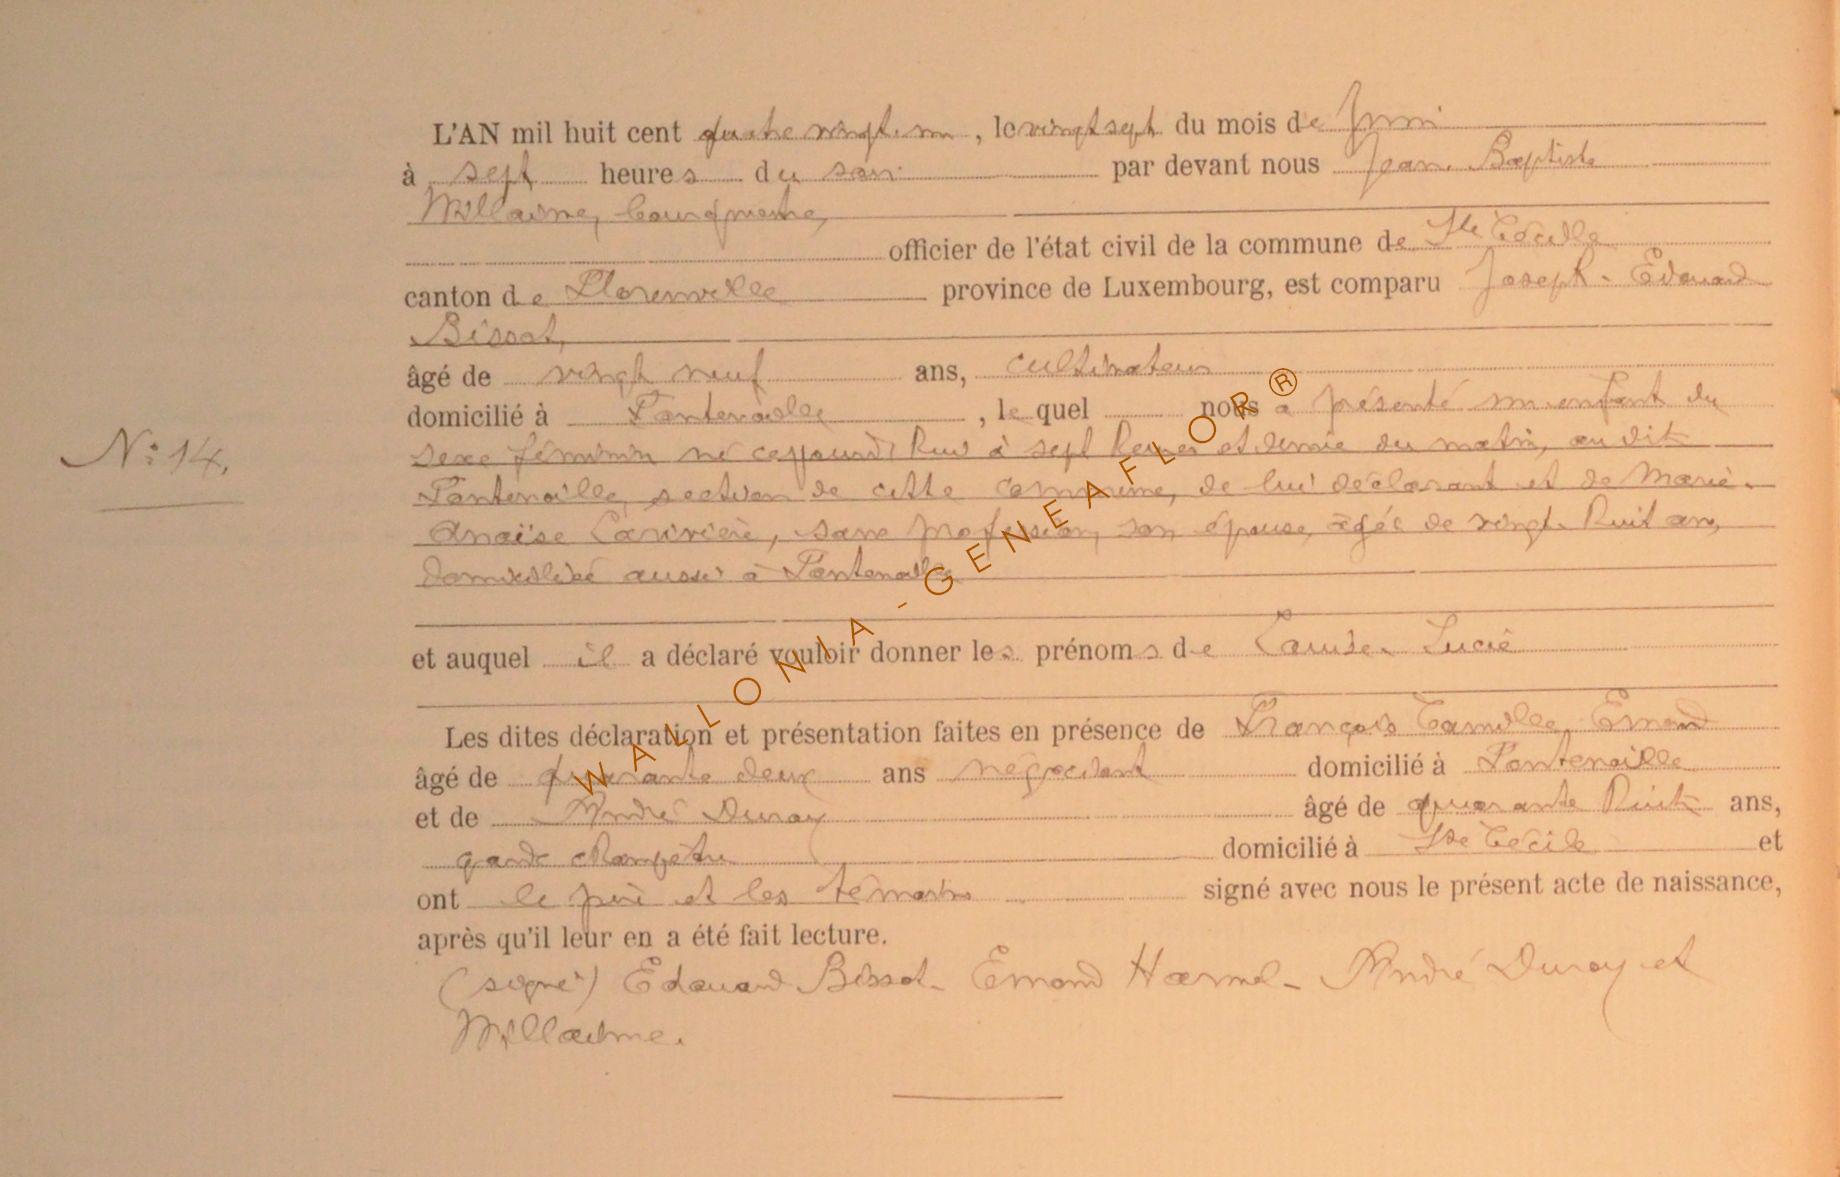 L'AN mil huit cent quatre vingt un, le vingt sept du mois de Juin
à sept heures du soir par devant nous Jean Baptiste
Willaime, bourgmestre,
officier de l'état civil de la commune de Ste Cécile
canton de Florenville province de Luxembourg, est comparu Joseph-Edouard
Bissot,
âgé de vingt neuf ans, cultivateur
domicilié à Fontenoille, lequel nous a présenté un enfant du
N° 14.
sexe féminin né cejourd'hui à sept heures et demie du matin, au dit
Fontenoille, section de cette commune, de lui déclarant et de Marie-
Anaïse Larivière, sans profession, son épouse, âgée de vingt-huit ans,
domiciliée aussi à Fontenoille
et auquel il a déclaré vouloir donner les prénoms de Louise-Lucie
Les dites déclaration et présentation faites en présence de François Camille Emond
âgé de quarante deux ans négociant domicilié à Fontenoille
et de André Duroy âgé de quarante huit ans,
garde champêtre domicilié à Ste Cécile et
ont le père et les témoins signé avec nous le présent acte de naissance,
après qu'il leur en a été fait lecture.
(signé) Edouard Bissot- Emond Hamel- André Duroy et
Willaime.
WALLONIA-GENEAFLOR®